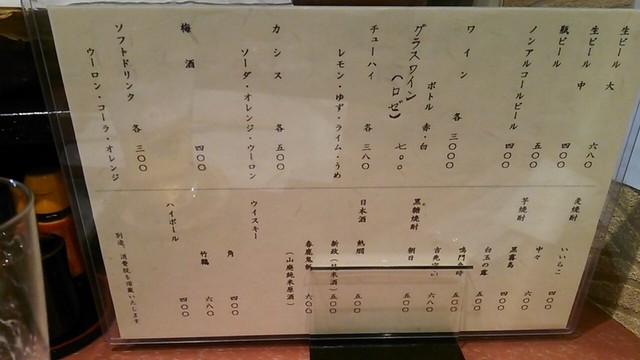 生ビール 大 六八〇
生ビール 中 五〇〇
瓶ビール 四〇〇
ノンアルコールビール 四〇〇
ワイン 各 三〇〇〇
ボトル 赤・白
グラスワイン（ロゼ） 七〇〇
チューハイ 各 三八〇
レモン・ゆず・ライム・うめ
カシス 各 五〇〇
ソーダ・オレンジ・ウーロン
梅酒 四〇〇
ソフトドリンク 各 三〇〇
ウーロン・コーラ・オレンジ
麦焼酎 いいちこ 四〇〇
中々 六〇〇
芋焼酎 黒霧島 五〇〇
白玉の露 五〇〇
鳴門金時 五〇〇
吉兆 六八〇
黒糖焼酎 朝日 五〇〇
日本酒 熱燗 五〇〇
新政（純米酒） 五〇〇
春鹿鬼斬 六〇〇
（山廃純米原酒）
ウイスキー 角 四〇〇
竹鶴 六八〇
ハイボール 四〇〇
別途、消費税を頂戴いたします